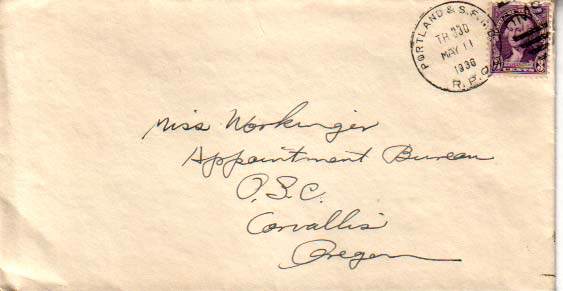 PORTLAND & S.F.
TR 330
MAY 11
1936
R.P.O.
Miss Workinger
Appointment Bureau
O.S.C.
Corvallis
Oregon